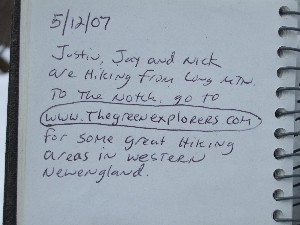 5/12/07
Justin, Jay and Nick
are Hiking from Long MTN.
To The Notch, go to
www.Thegreenexplorers.com
for some great Hiking
areas in western
Newengland.